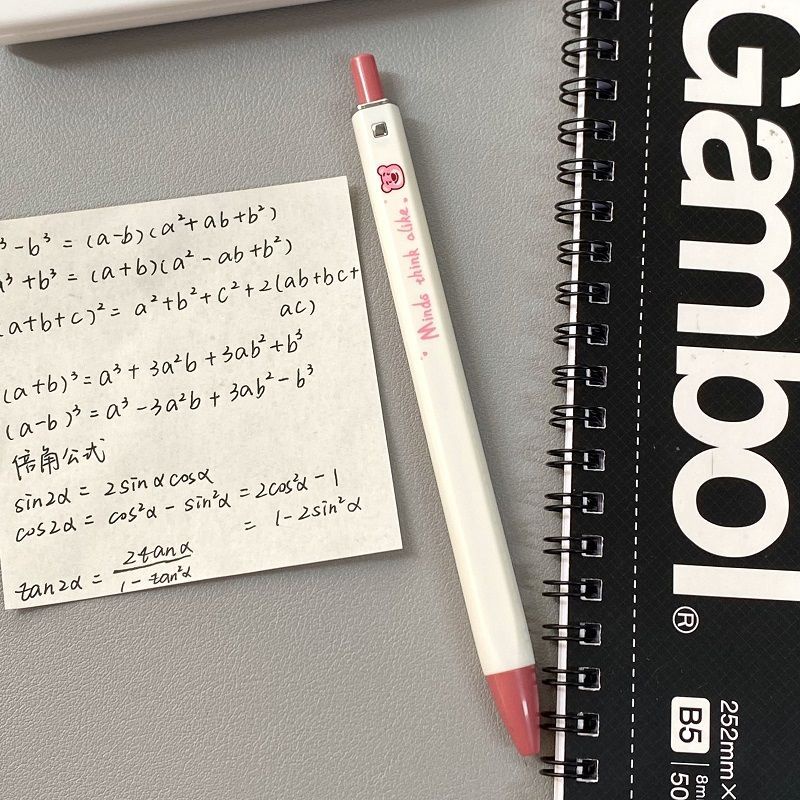 ³-b³ = (a-b)(a²+ab+b²)
a³+b³ = (a+b)(a²-ab+b²)
(a+b+c)² = a²+b²+c²+2(ab+bc+
ac)
(a+b)³ = a³+3a²b+3ab²+b³
(a-b)³ = a³-3a²b+3ab²-b³
倍角公式
sin2α = 2sinαcosα
cos2α = cos²α-sin²α = 2cos²α-1
= 1-2sin²α
tan2α = 2tanα / 1-tan²α
Minds think alike.
Gambol®
252mm×
B5
8m
50